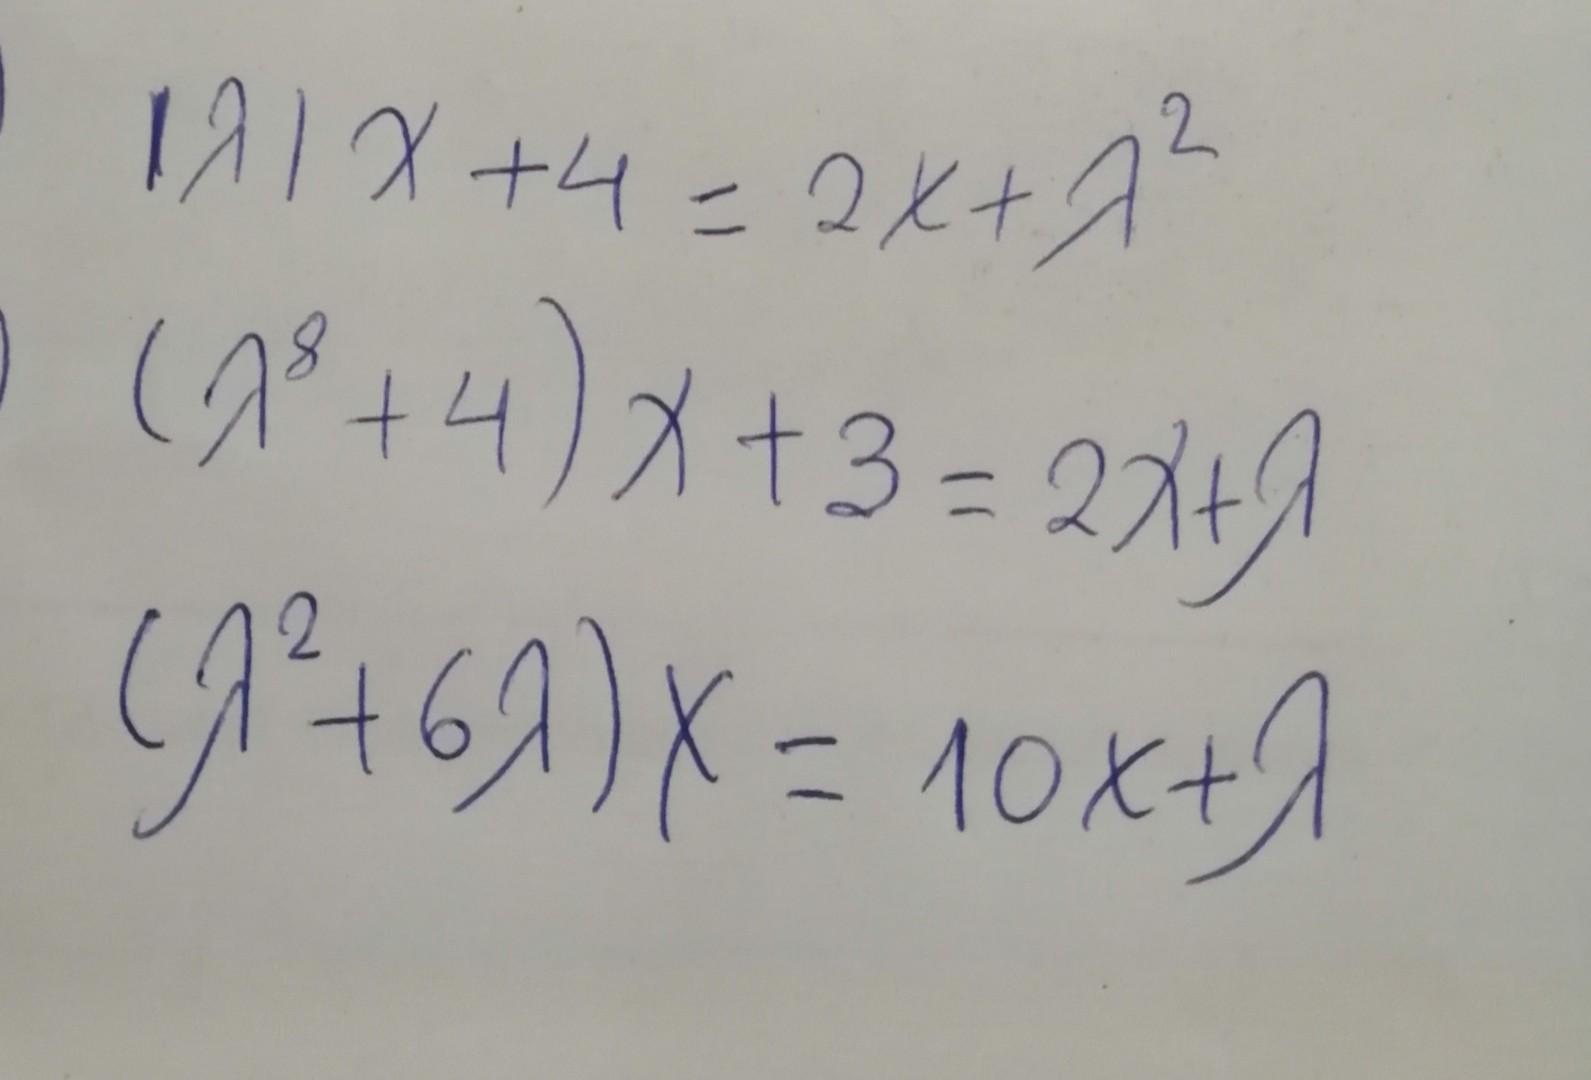 |λ|x+4=2x+λ²
(λ⁸+4)x+3=2x+λ
(λ²+6λ)x=10x+λ